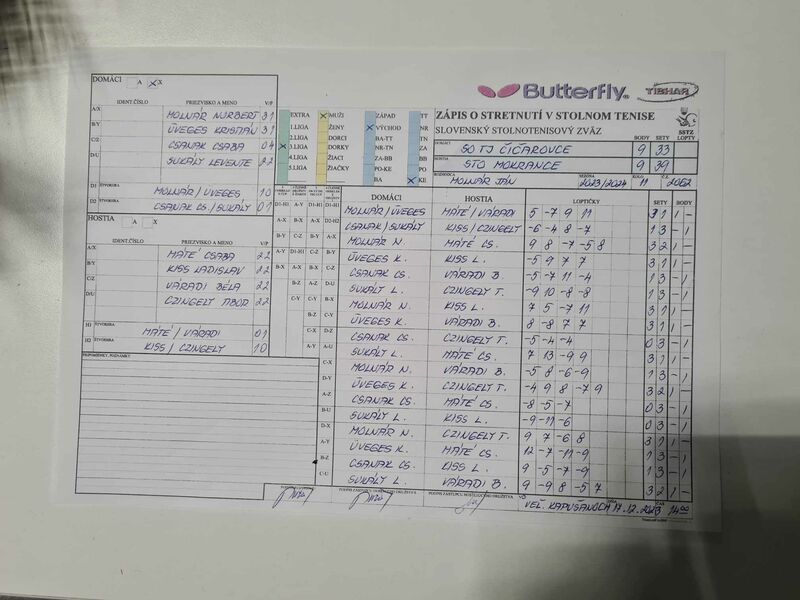 Butterfly TIBHAR
DOMÁCI A X X
IDENT.ČÍSLO PRIEZVISKO A MENO V/P
A/X MOLNÁR NORBERT 31
B/Y ÜVEGES KRISTIÁN 31
C/Z CSANAK CSABA 04
D/U SUKÁLY LEVENTE 22
D1 ŠTVORHRA MOLNÁR/ÜVEGES 10
D2 CSANAK CS./SUKÁLY 01
HOSTIA A X
IDENT.ČÍSLO PRIEZVISKO A MENO V/P
A/X MÁTÉ CSABA 22
B/Y KISS LADISLAV 22
C/Z VÁRADI BÉLA 22
D/U CZINGELY TIBOR 22
H1 ŠTVORHRA MÁTÉ/VÁRADI 01
H2 KISS/CZINGELY 10
PRIPOMIENKY, POZNÁMKY
EXTRA X MUŽI ZÁPAD TT
1.LIGA ŽENY X VÝCHOD NR
2.LIGA DORCI BA-TT TN
X 3.LIGA DORKY NR-TN ZA
4.LIGA ŽIACI ZA-BB BB
5.LIGA ŽIAČKY PO-KE PO
BA X KE
ZÁPIS O STRETNUTÍ V STOLNOM TENISE
SLOVENSKÝ STOLNOTENISOVÝ ZVÄZ
SSTZ
BODY SETY LOPTY
DOMÁCI SO TJ ČIČAROVCE 9 33
HOSTIA STO MOKRANCE 9 39
ROZHODCA MOLNÁR JÁN SEZÓNA 2023/2024 KOLO 11 Č.Z. 2062
DOMÁCI HOSTIA LOPTIČKY SETY BODY
D1-H1 MOLNÁR/ÜVEGES MÁTÉ/VÁRADI 5 -7 9 11 3 1 1 -
D2-H2 CSANAK/SUKÁLY KISS/CZINGELY -6 -4 8 -7 1 3 - 1
A-X MOLNÁR N. MÁTÉ CS. 9 8 -7 -5 8 3 2 1 -
B-Y ÜVEGES K. KISS L. -5 9 7 7 3 1 1 -
C-Z CSANAK CS. VÁRADI B. -5 -7 11 -4 1 3 - 1
D-U SUKÁLY L. CZINGELY T. -9 10 -8 -8 1 3 - 1
A-Y MOLNÁR N. KISS L. 7 5 -7 11 3 1 1 -
B-X ÜVEGES K. VÁRADI B. 8 -8 7 7 3 1 1 -
D-Z CSANAK CS. CZINGELY T. -5 -4 -4 0 3 - 1
SUKÁLY L. MÁTÉ CS. 7 13 -9 9 3 1 1 -
C-X MOLNÁR N. VÁRADI B. -5 8 -6 -9 1 3 - 1
D-Y ÜVEGES K. CZINGELY T. -4 9 8 -7 9 3 2 1 -
A-Z CSANAK CS. MÁTÉ CS. -8 -5 -7 0 3 - 1
B-U SUKÁLY L. KISS L. -9 -11 -6 0 3 - 1
D-X MOLNÁR N. CZINGELY T. 9 7 -6 8 3 1 1 -
A-Y ÜVEGES K. MÁTÉ CS. 12 -7 -11 -9 1 3 - 1
B-Z CSANAK CS. KISS L. 9 -5 -7 -9 1 3 - 1
C-U SUKÁLY L. VÁRADI B. 9 -9 8 -5 7 3 2 1 -
VO VEĽ. KAPUŠANOCH 17.12.2023 14:00